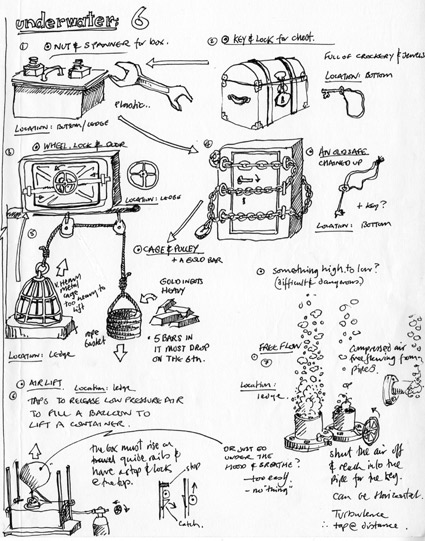 underwater: 6
① • NUT & SPANNER for box.
② • KEY & LOCK for chest.
FULL OF CROCKERY & JEWELS
LOCATION: BOTTOM
plastic...
LOCATION: BOTTOM/LEDGE
③ • WHEEL, LOCK & DOOR
LOCATION: LEDGE
④
• AN OLD SAFE
CHAINED UP
+ key?
LOCATION: BOTTOM
⑤
• CAGE & PULLEY
+ A GOLD BAR
V. HEAVY
metal
cage
too heavy to
lift
GOLD INGOTS
HEAVY
rope
basket
5 BARS IN
IT MUST DROP
ON THE 6th.
LOCATION: Ledge
• something high to low?
(difficult & dangerous)
⑥ • AIRLIFT Location: ledge.
TAPS TO RELEASE LOW PRESSURE AIR
TO FILL A BALLOON TO
LIFT A CONTAINER.
The box must rise on
travel guide rails &
have a stop & lock
@ the top.
stop
catch.
OR JUST GO
UNDER THE
HOOD & BREATHE?
— too easy
— no "thing"
FREE FLOW
⑦
Location:
ledge.
compressed air
free flowing from
pipes.
OP
shut the air off
& reach into the
pipe for the key.
Can be Horizontal.
Turbulence
∴ tap @ distance.